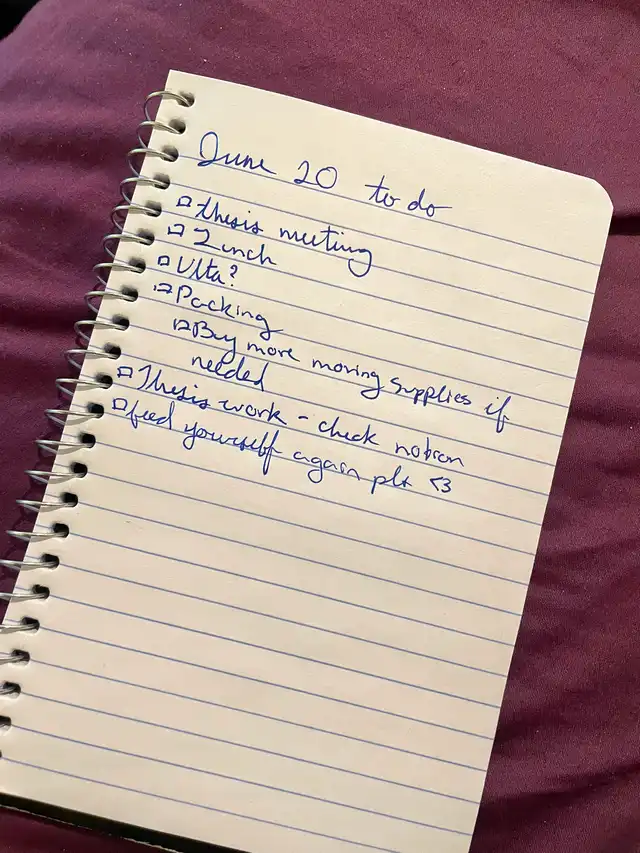 June 20 to do
□ thesis meeting
□ Lunch
□ Ulta?
□ Packing
□ Buy more moving supplies if
needed
□ Thesis work - check notion
□ feed yourself again pls <3